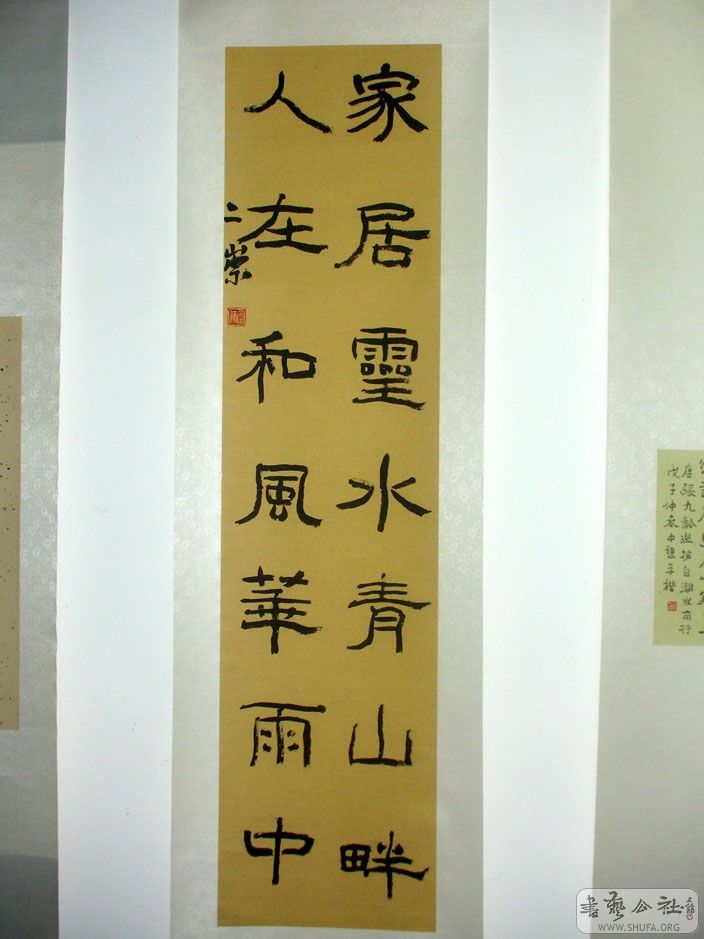 家居靈水青山畔
人在和風華雨中
二崇
唐張九齡巡按自灕水南行
戊子仲春中
書藝公社
WWW.SHUFA.ORG